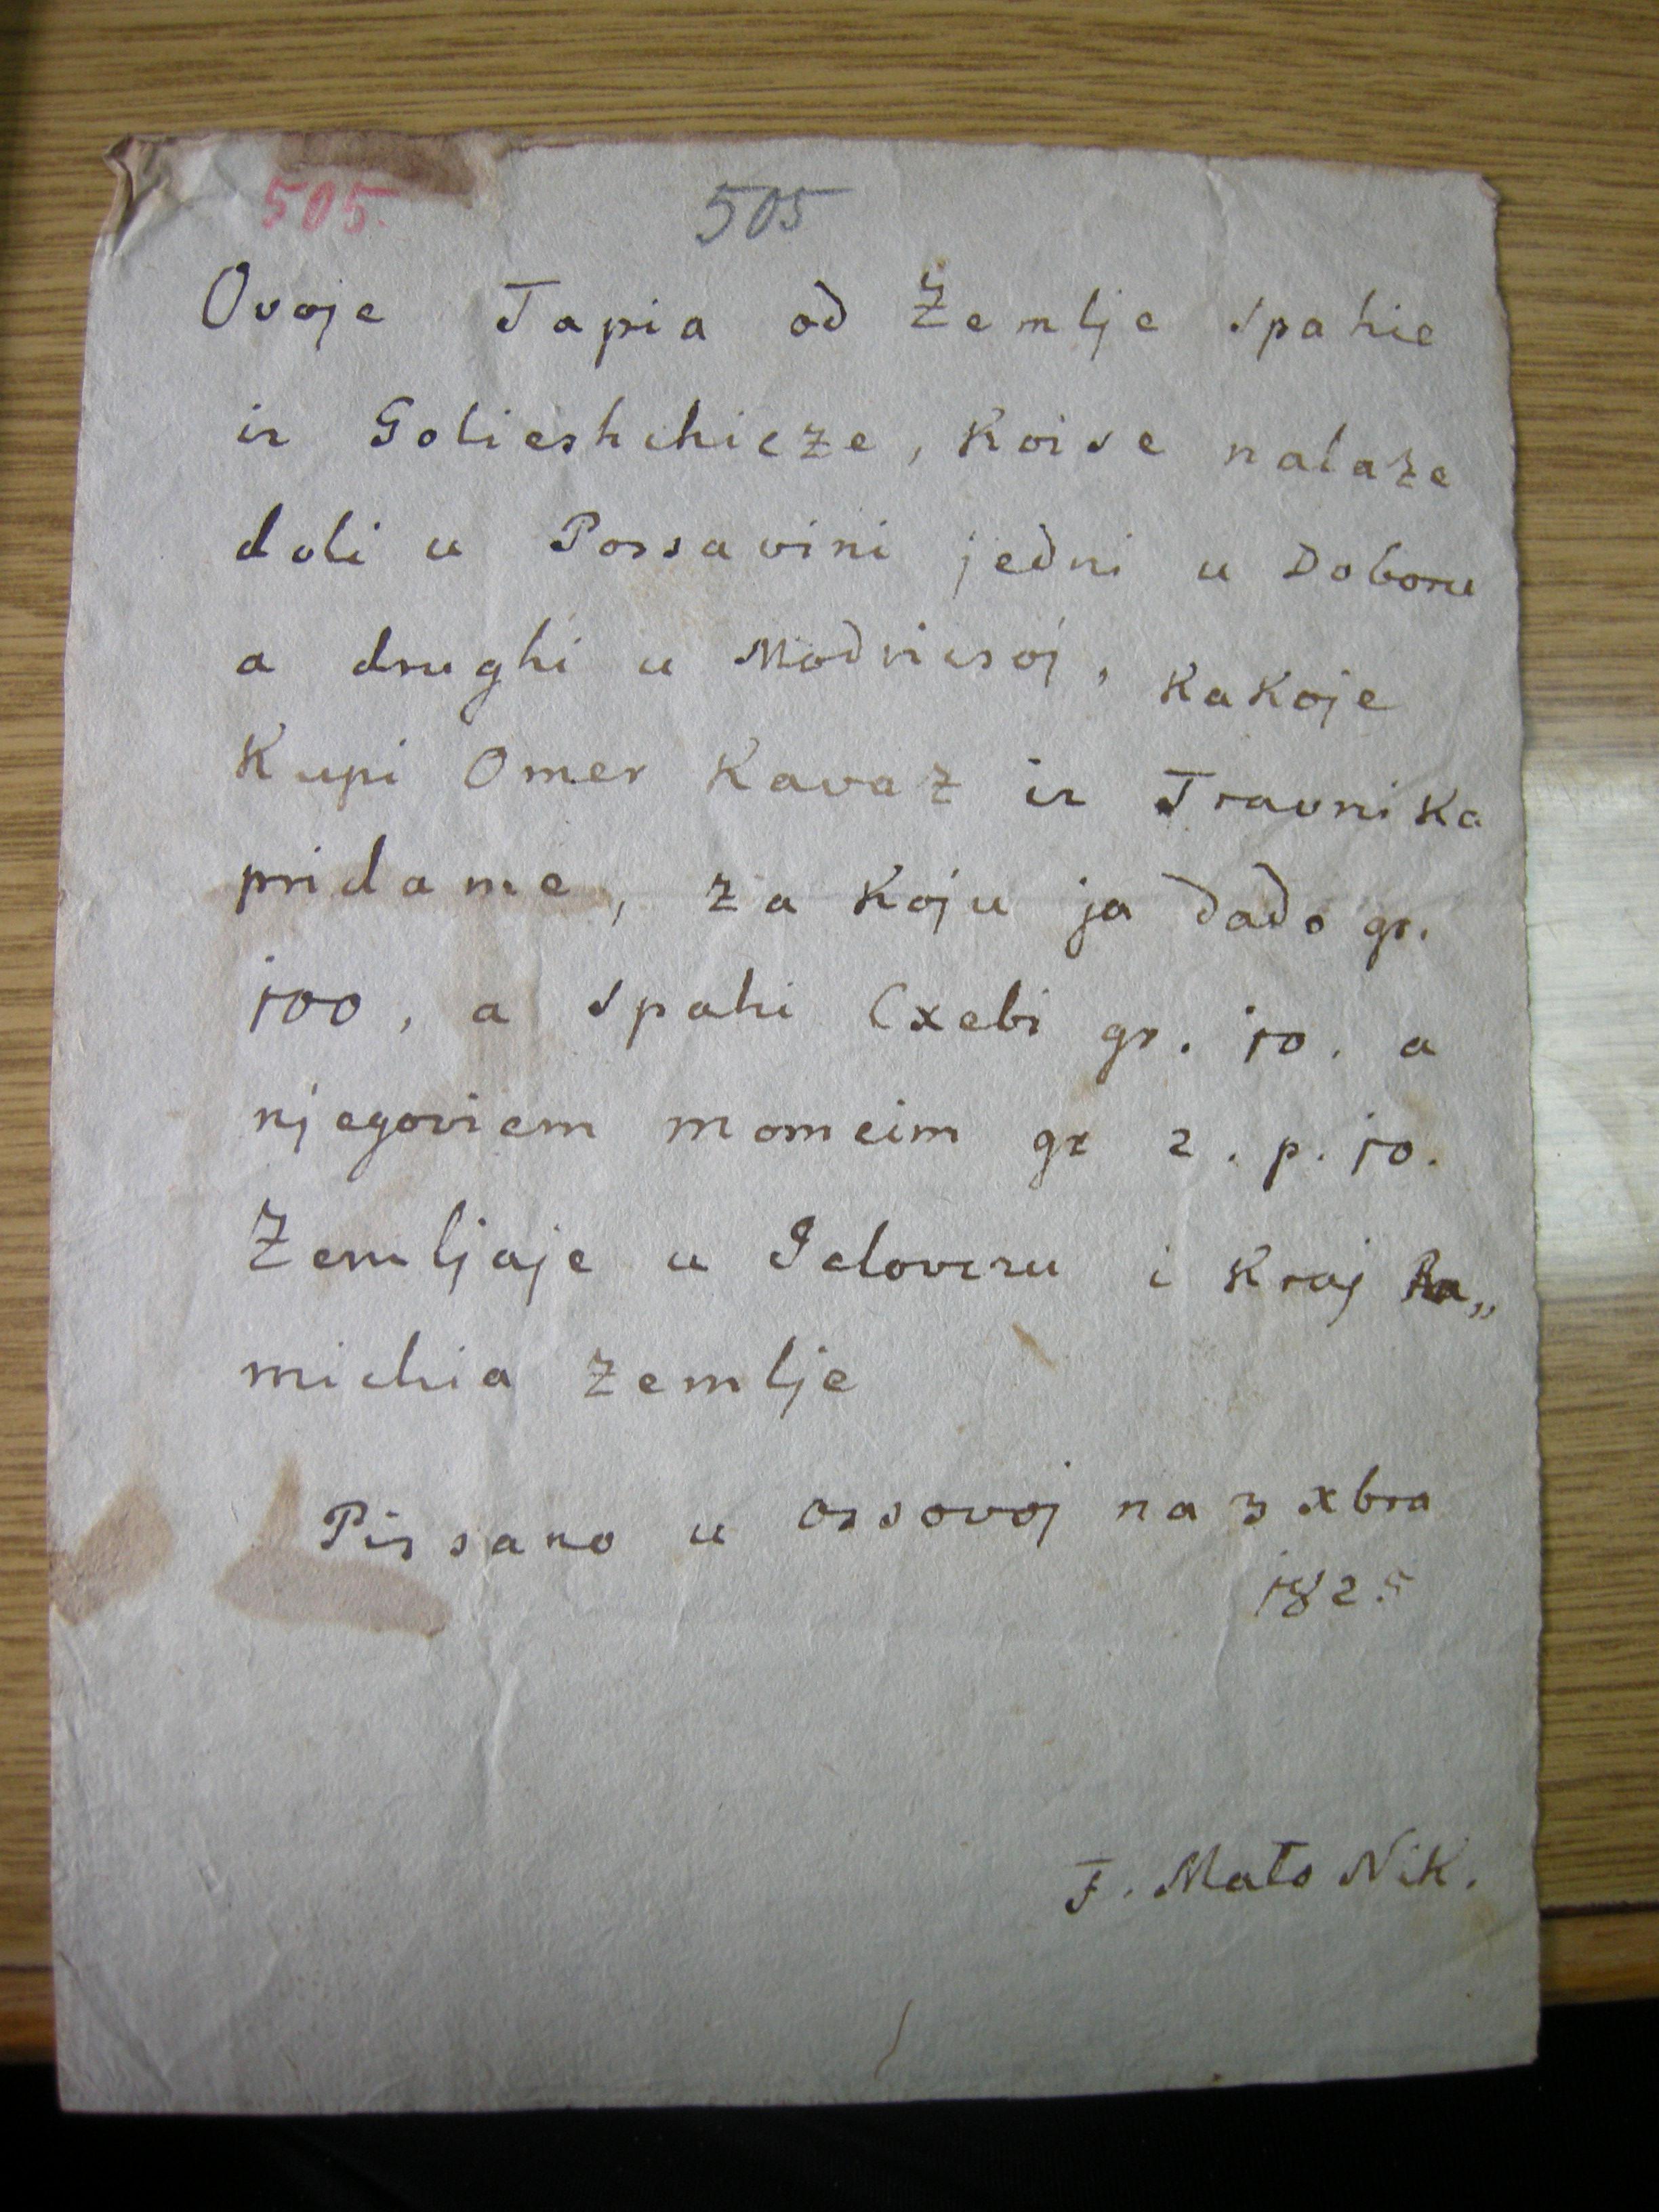 505. 505
Ovoje Tapia od Zemlje spahie
is Golieshchicze, koise nalaze
doli u Possavini jedni u Doboru
a drughi u Modricsoj, kakoje
kupi Omer Kavaz is Travnika
pridame, za koju ja dado gr.
100, a spahi Cxebi gr. 10. a
njegoviem momcim gr 2. p. 10.
Zemljaje u Jelovczu i kraj
michia zemlje
Pissano u Ossovoj na 3 xbra
182
F. Mato Nik.